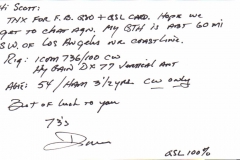 Hi Scott:
TNX FOR F.B. QSO + QSL CARD. HOPE WE
GET TO CHAT AGN. MY QTH IS ABT 60 MI
SW. OF LOS ANGELES NR COASTLINE.
Rig: ICOM 736/100 CW
HY GAIN DX 77 VERTICAL ANT
AGE: 54 / HAM 3 1/2 YRS CW only
Best of luck to you
73's
QSL 100%